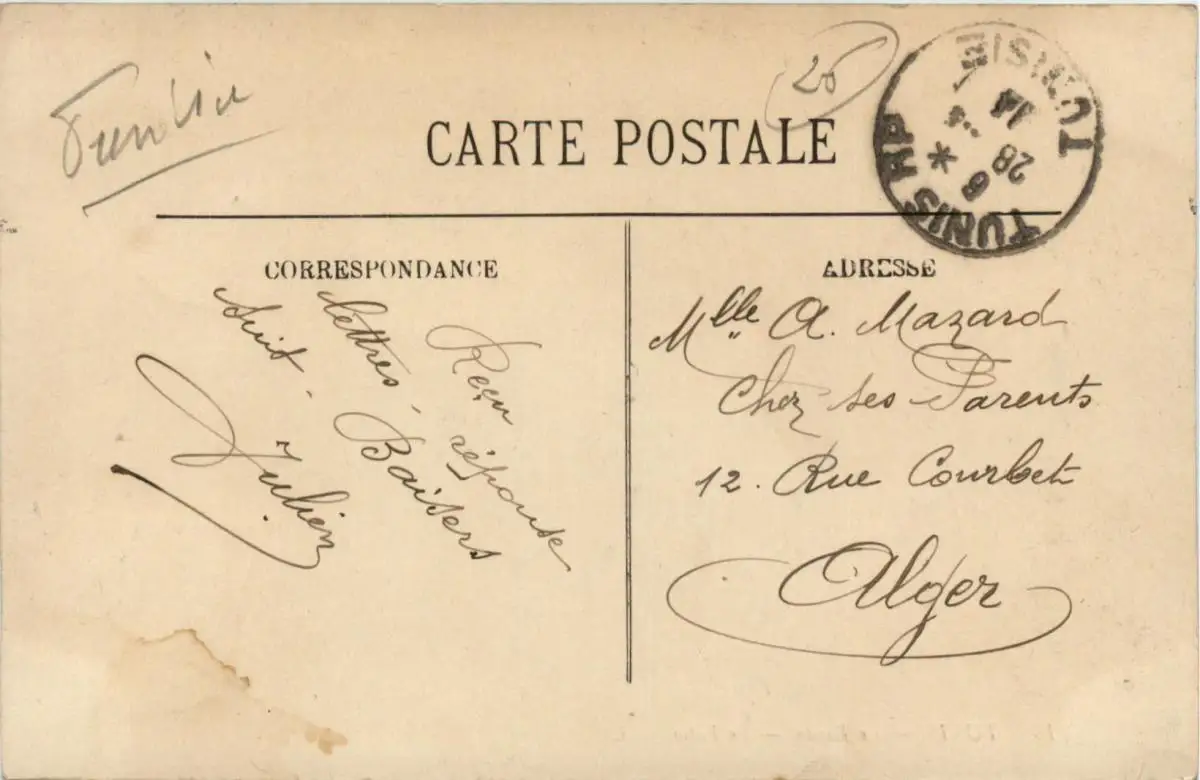 Tunisie
26
CARTE POSTALE
TUNISIE
TUNIS RP
28
14
CORRESPONDANCE
Reçu réponse
lettres. Baisers
suit.
Julien
ADRESSE
Mlle A. Mazard
Chez ses Parents
12. Rue Courbet
Alger